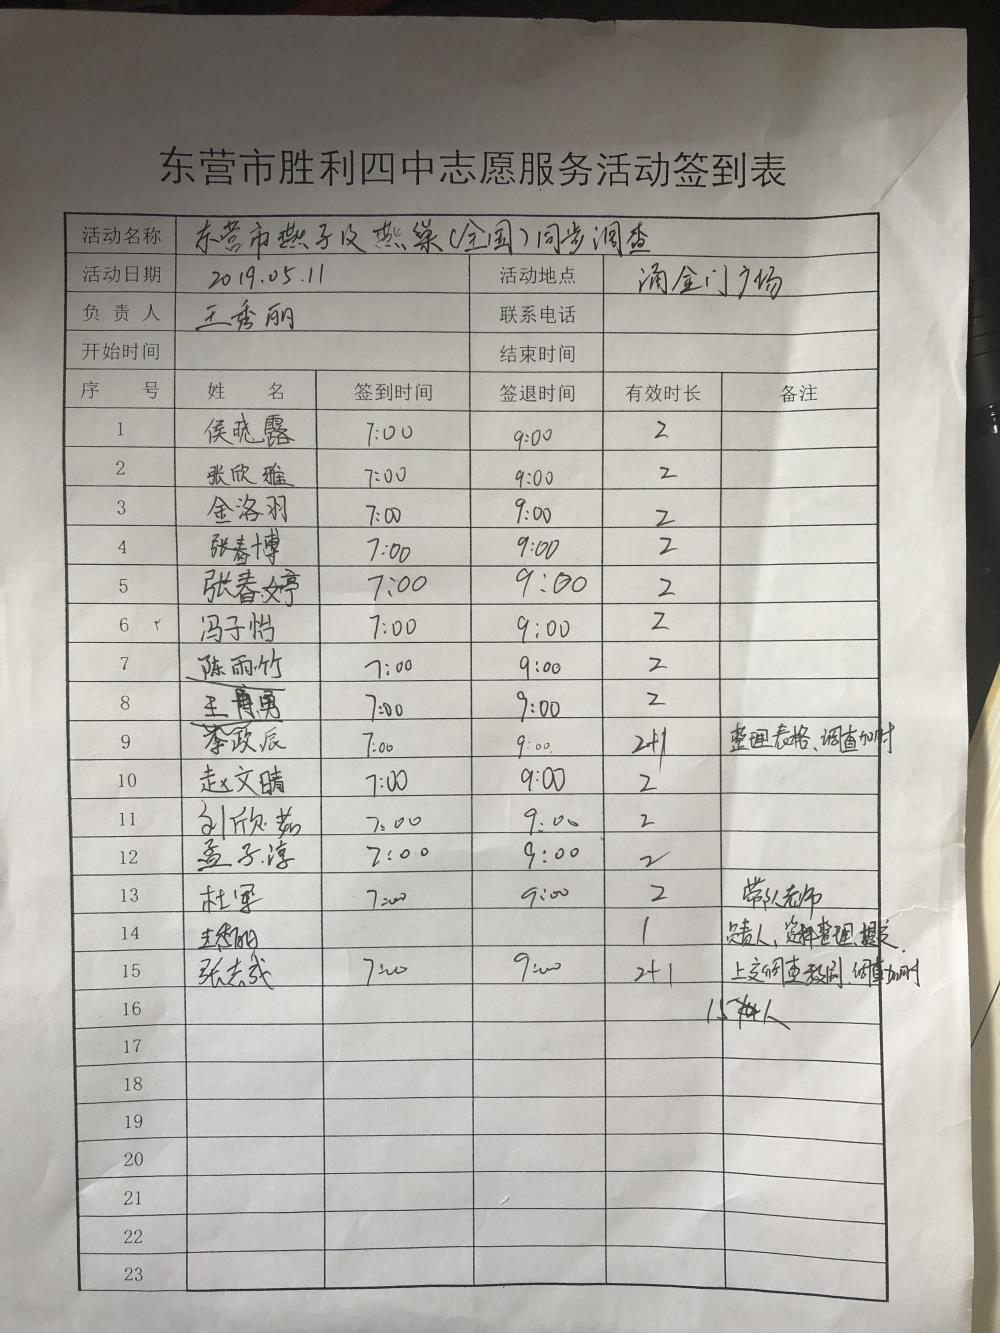 东营市胜利四中志愿服务活动签到表
活动名称 东营市燕子及燕巢(全国)同步调查
活动日期 2019.05.11 活动地点 涌金门广场
负责人 王秀丽 联系电话
开始时间 结束时间
序号 姓名 签到时间 签退时间 有效时长 备注
1 侯晓露 7:00 9:00 2
2 张欣雅 7:00 9:00 2
3 金洛羽 7:00 9:00 2
4 张春博 7:00 9:00 2
5 张春婷 7:00 9:00 2
6 冯子怡 7:00 9:00 2
7 陈雨竹 7:00 9:00 2
8 王博勇 7:00 9:00 2
9 李政辰 7:00 9:00 2+1 整理表格、调查加时
10 赵文晴 7:00 9:00 2
11 刘欣茹 7:00 9:00 2
12 孟子淳 7:00 9:00 2
13 杜军 7:00 9:00 2 带队老师
14 王秀丽 1 负责人、资料整理、提交
15 张志成 7:00 9:00 2+1 上交调查数据、调查加时
16 15人
17
18
19
20
21
22
23